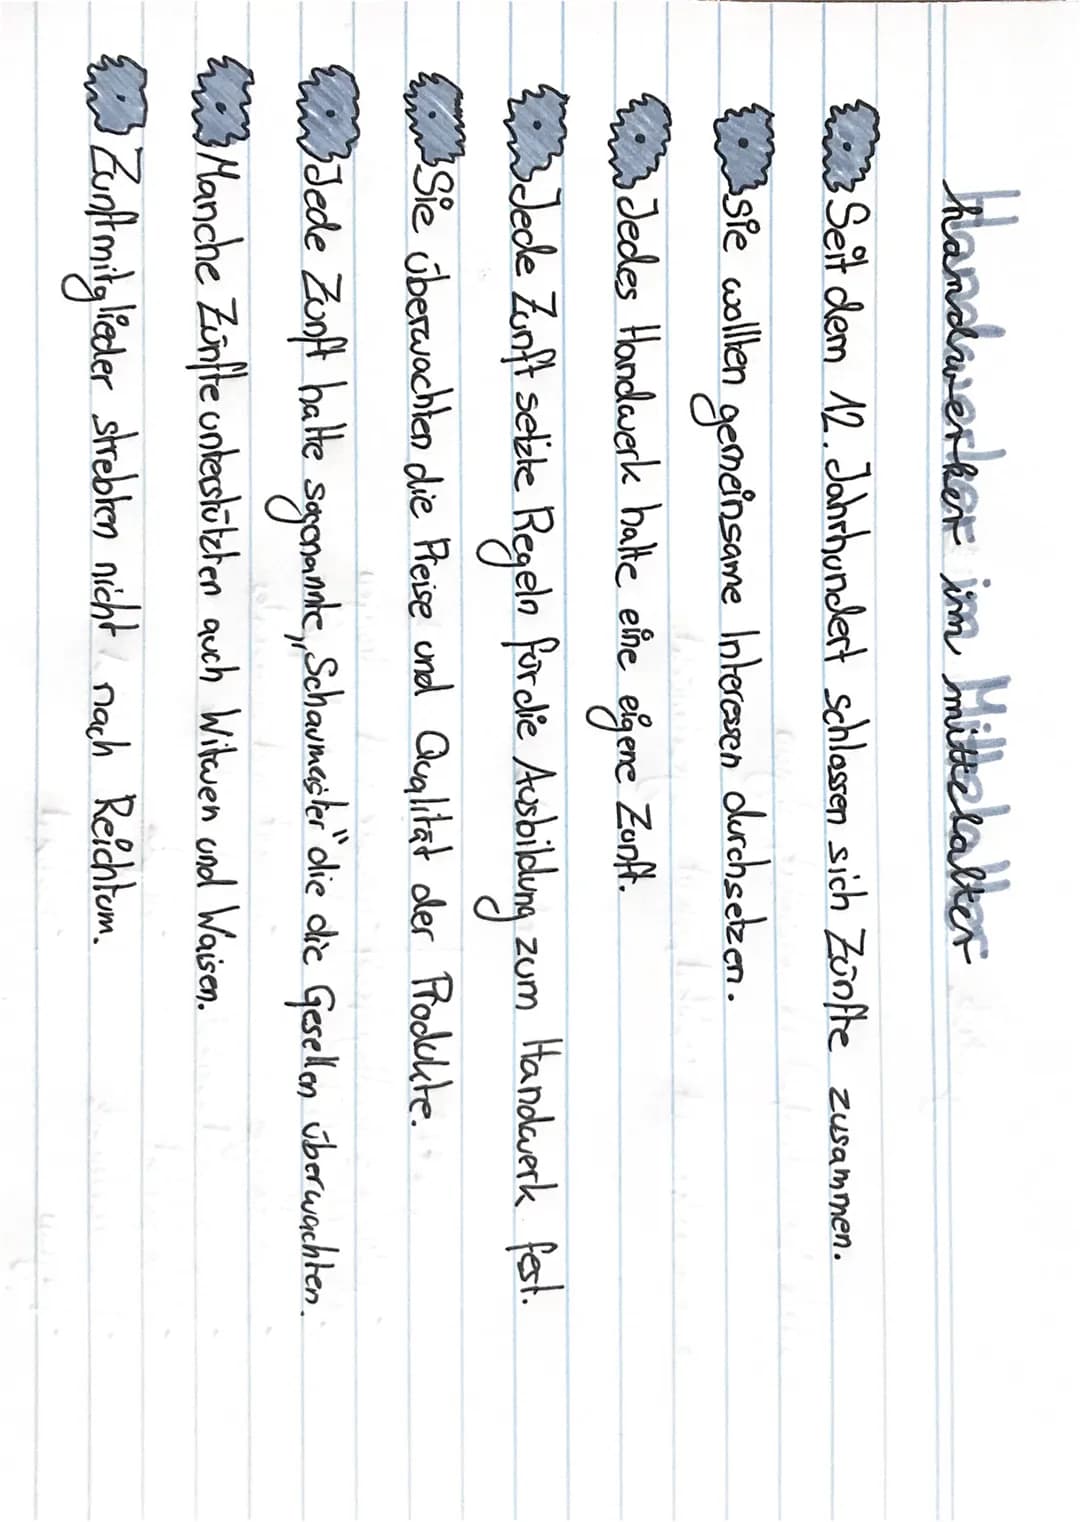 Handwerker im Mittelalter
Seit dem 12. Jahrhundert schlossen sich Zünfte zusammen.
sie wollten gemeinsame Interessen durchsetzen.
Jedes Handwerk hatte eine eigene Zunft.
Jede Zunft setzte Regeln für die Ausbildung zum Handwerk fest.
Sie überwachten die Preise und Qualität der Produkte.
Jede Zunft hatte sogenannte „Schaumeister“ die die Gesellen überwachten.
Manche Zünfte unterstützten auch Witwen und Waisen.
Zunftmitglieder strebten nicht nach Reichtum.